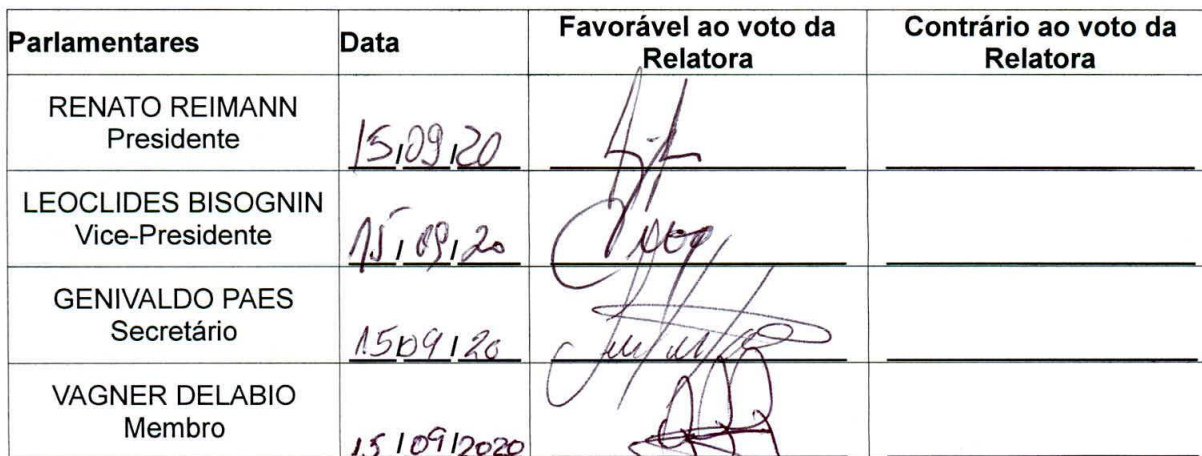 Parlamentares Data Favorável ao voto da Relatora Contrário ao voto da Relatora
RENATO REIMANN
Presidente
15/09/20
LEOCLIDES BISOGNIN
Vice-Presidente
15/09/20
GENIVALDO PAES
Secretário
15/09/20
VAGNER DELABIO
Membro
15/09/2020